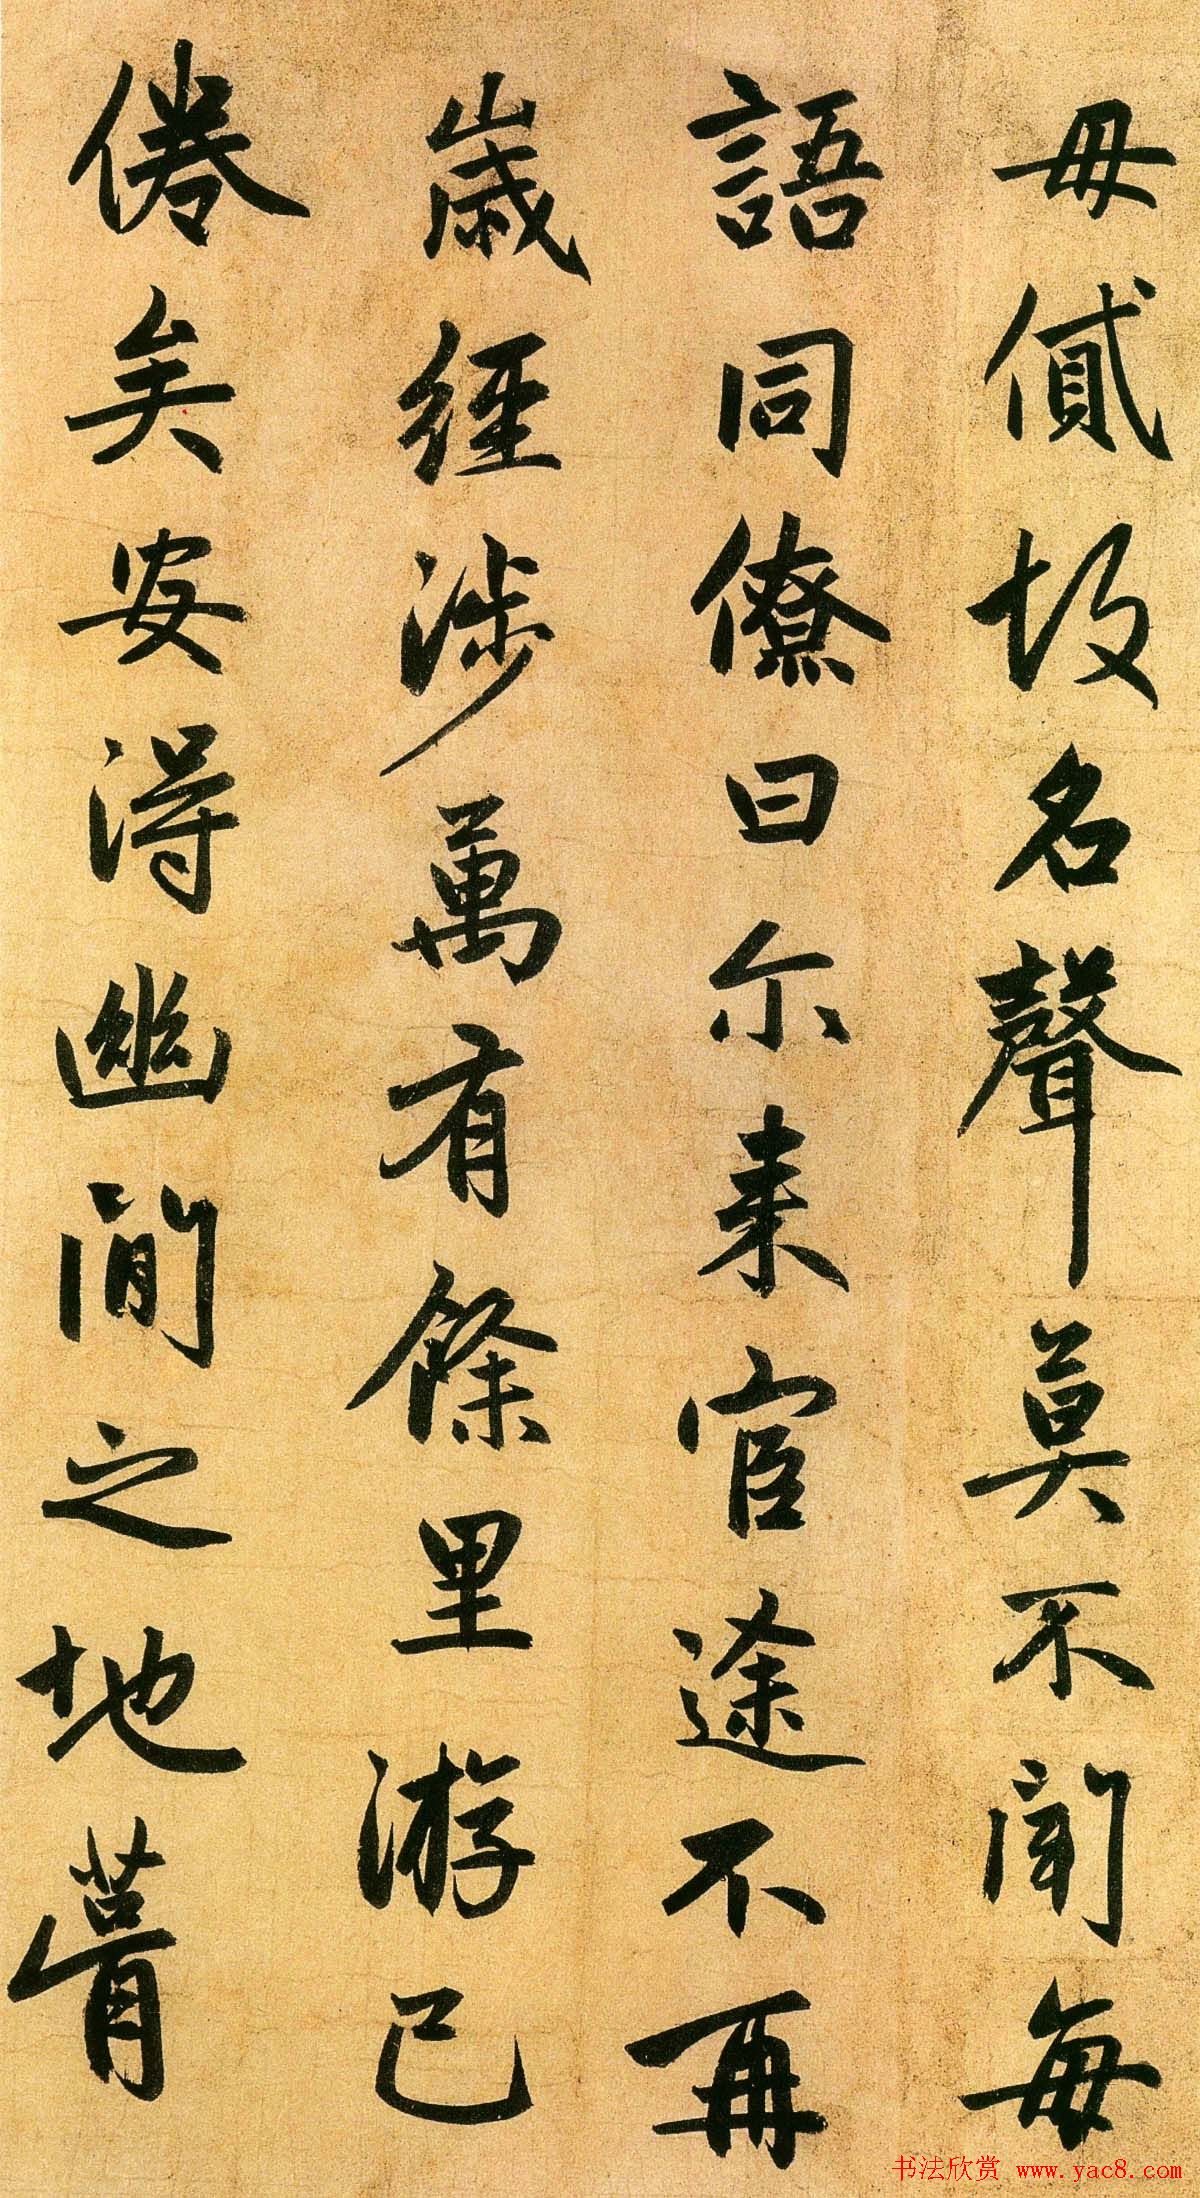 毋貳故名聲莫不聞每
語同僚曰尔来宦途不再
歲經涉萬有餘里游已
倦矣安得幽閒之地菺
书法欣赏 www.yac8.com